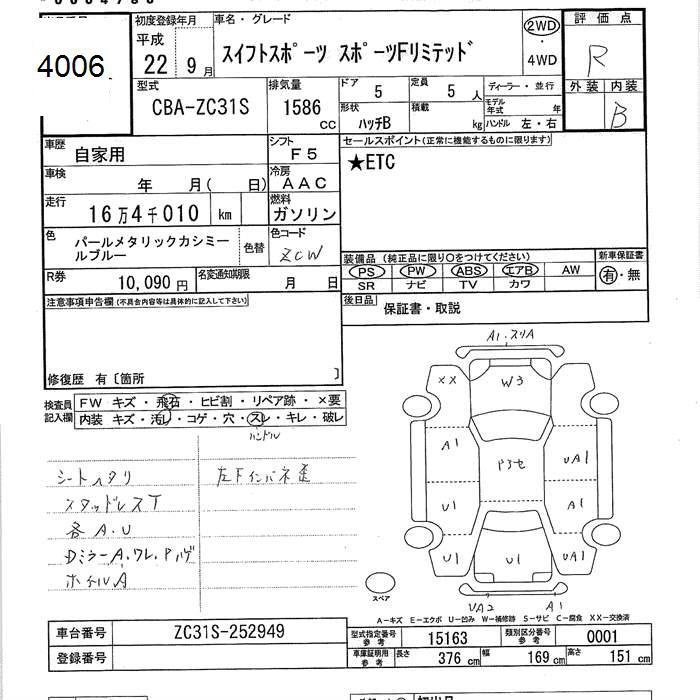 4006
初度登録年月
平成
22年 9月
車名・グレード
スイフトスポーツ スポーツFリミテッド
2WD
・
4WD
評価点
R
外装 内装
B
型式
CBA-ZC31S
排気量
1586
CC
ドア
5
定員
5人
形状
ハッチB
積載
kg
ディーラー・並行
モデル年式 年
ハンドル 左・右
車歴
自家用
シフト
F5
車検
年 月( 日)
冷房
AAC
走行
16万4千010 km
燃料
ガソリン
色
パールメタリックカシミールブルー
色替
色コード
ZCW
R券
10,090円
名変通知期限
月 日
セールスポイント(正常に機能するものに限ります)
★ETC
装備品(純正品に限り○をつけてください)
PS PW ABS エアB AW
SR ナビ TV カワ
新車保証書
有・無
後日品
保証書・取説
注意事項申告欄(不具合内容等は具体的に記入して下さい)
修復歴 有〔箇所 〕
検査員記入欄
FW キズ・飛石・ヒビ割・リペア跡・×要
内装 キズ・汚レ・コゲ・穴・スレ・キレ・破レ
ハンドル
シートヘタリ
スタッドレスT
各A.U
Dミラー A.ワレ.Pハゲ
ホイルA
左Fインパネ歪
A1.スリA
XX
W3
A1
UA1
U1
A1
U1
U1
UA1
UA2
A1
スペア
A-キズ E-エクボ U-凹み W-補修跡 S-サビ C-腐食 XX-交換済
車台番号
ZC31S-252949
登録番号
型式指定番号参考
15163
類別区分番号参考
0001
車庫証明用参考
長さ 376cm
幅 169cm
高さ 151cm